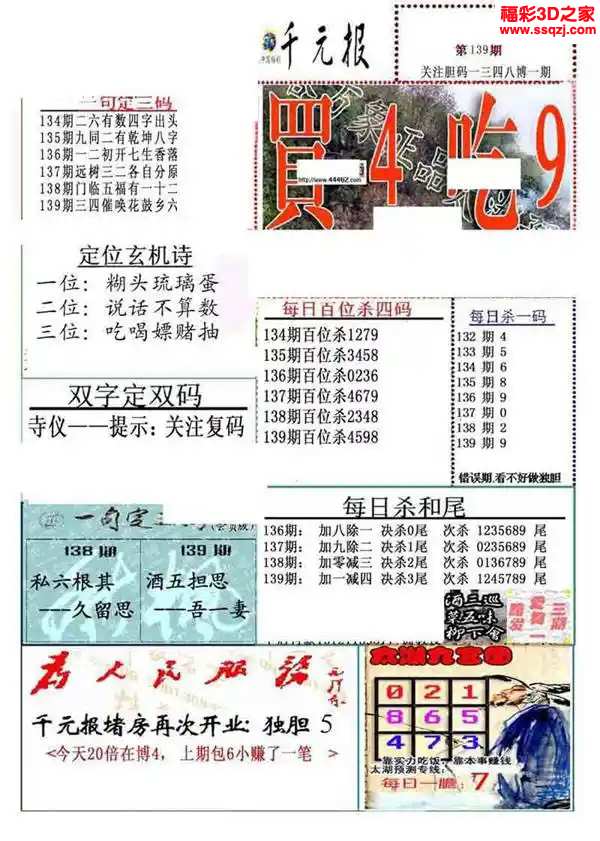 福彩3D之家
www.ssqzj.com
千元报
第139期
关注胆码一三四八博一期
一句定三码
134期二六有数四字出头
135期九同二有乾坤八字
136期一二初开七生香落
137期远树三二各自分原
138期门临五福有一十二
139期三四催唤花鼓乡六
買4吃9
http://www.44462.com
定位玄机诗
一位：糊头琉璃蛋
二位：说话不算数
三位：吃喝嫖赌抽
双字定双码
寺仪——提示：关注复码
每日百位杀四码
134期百位杀1279
135期百位杀3458
136期百位杀0236
137期百位杀4679
138期百位杀2348
139期百位杀4598
每日杀一码
132 期 4
133 期 5
134 期 6
135 期 8
136 期 9
137 期 0
138 期 2
139 期 9
错误期.看不好做独胆
一句定三
138期
私六根其
---久留思
139期
酒五担思
---吾一妻
每日杀和尾
136期： 加八除一 决杀0尾 次杀 1235689 尾
137期： 加九除二 决杀1尾 次杀 0235689 尾
138期： 加零减三 决杀2尾 次杀 0136789 尾
139期： 加一减四 决杀3尾 次杀 1245789 尾
酒三巡
菜五味
柳下舍
为人民服务
千元报堵房再次开业：独胆 5
<今天20倍在博4，上期包6小赚了一笔 >
0 2 1
8 6 5
4 7 3
靠实力吃饭，靠本事赚钱
太湖预测专线:
每日一胆: 7